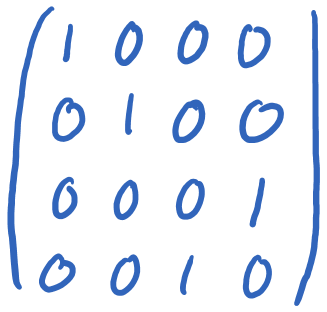 1 0 0 0
0 1 0 0
0 0 0 1
0 0 1 0